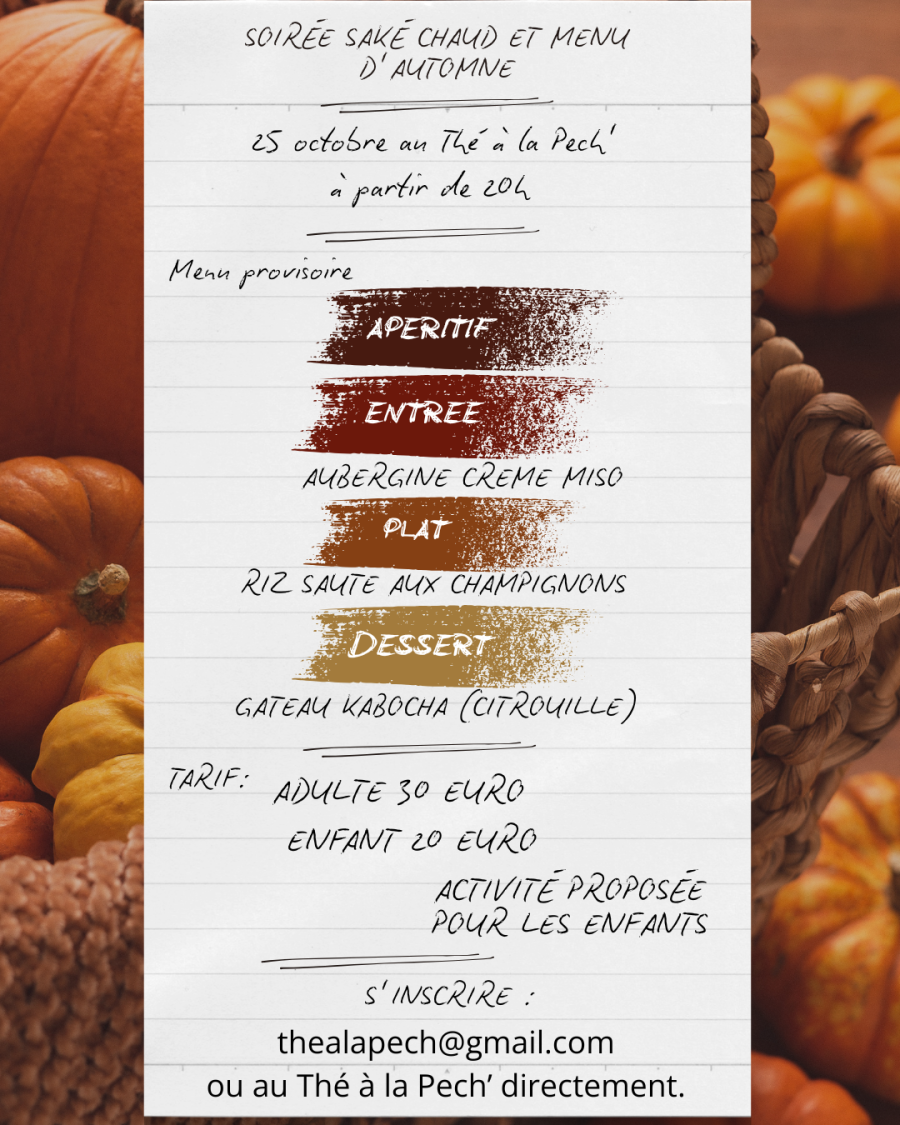 SOIRÉE SAKÉ CHAUD ET MENU
D'AUTOMNE
25 octobre au Thé à la Pech'
à partir de 20h
Menu provisoire
APERITIF
ENTREE
AUBERGINE CREME MISO
PLAT
RIZ SAUTE AUX CHAMPIGNONS
DESSERT
GATEAU KABOCHA (CITROUILLE)
TARIF:
ADULTE 30 EURO
ENFANT 20 EURO
ACTIVITÉ PROPOSÉE
POUR LES ENFANTS
S'INSCRIRE :
thealapech@gmail.com
ou au Thé à la Pech’ directement.